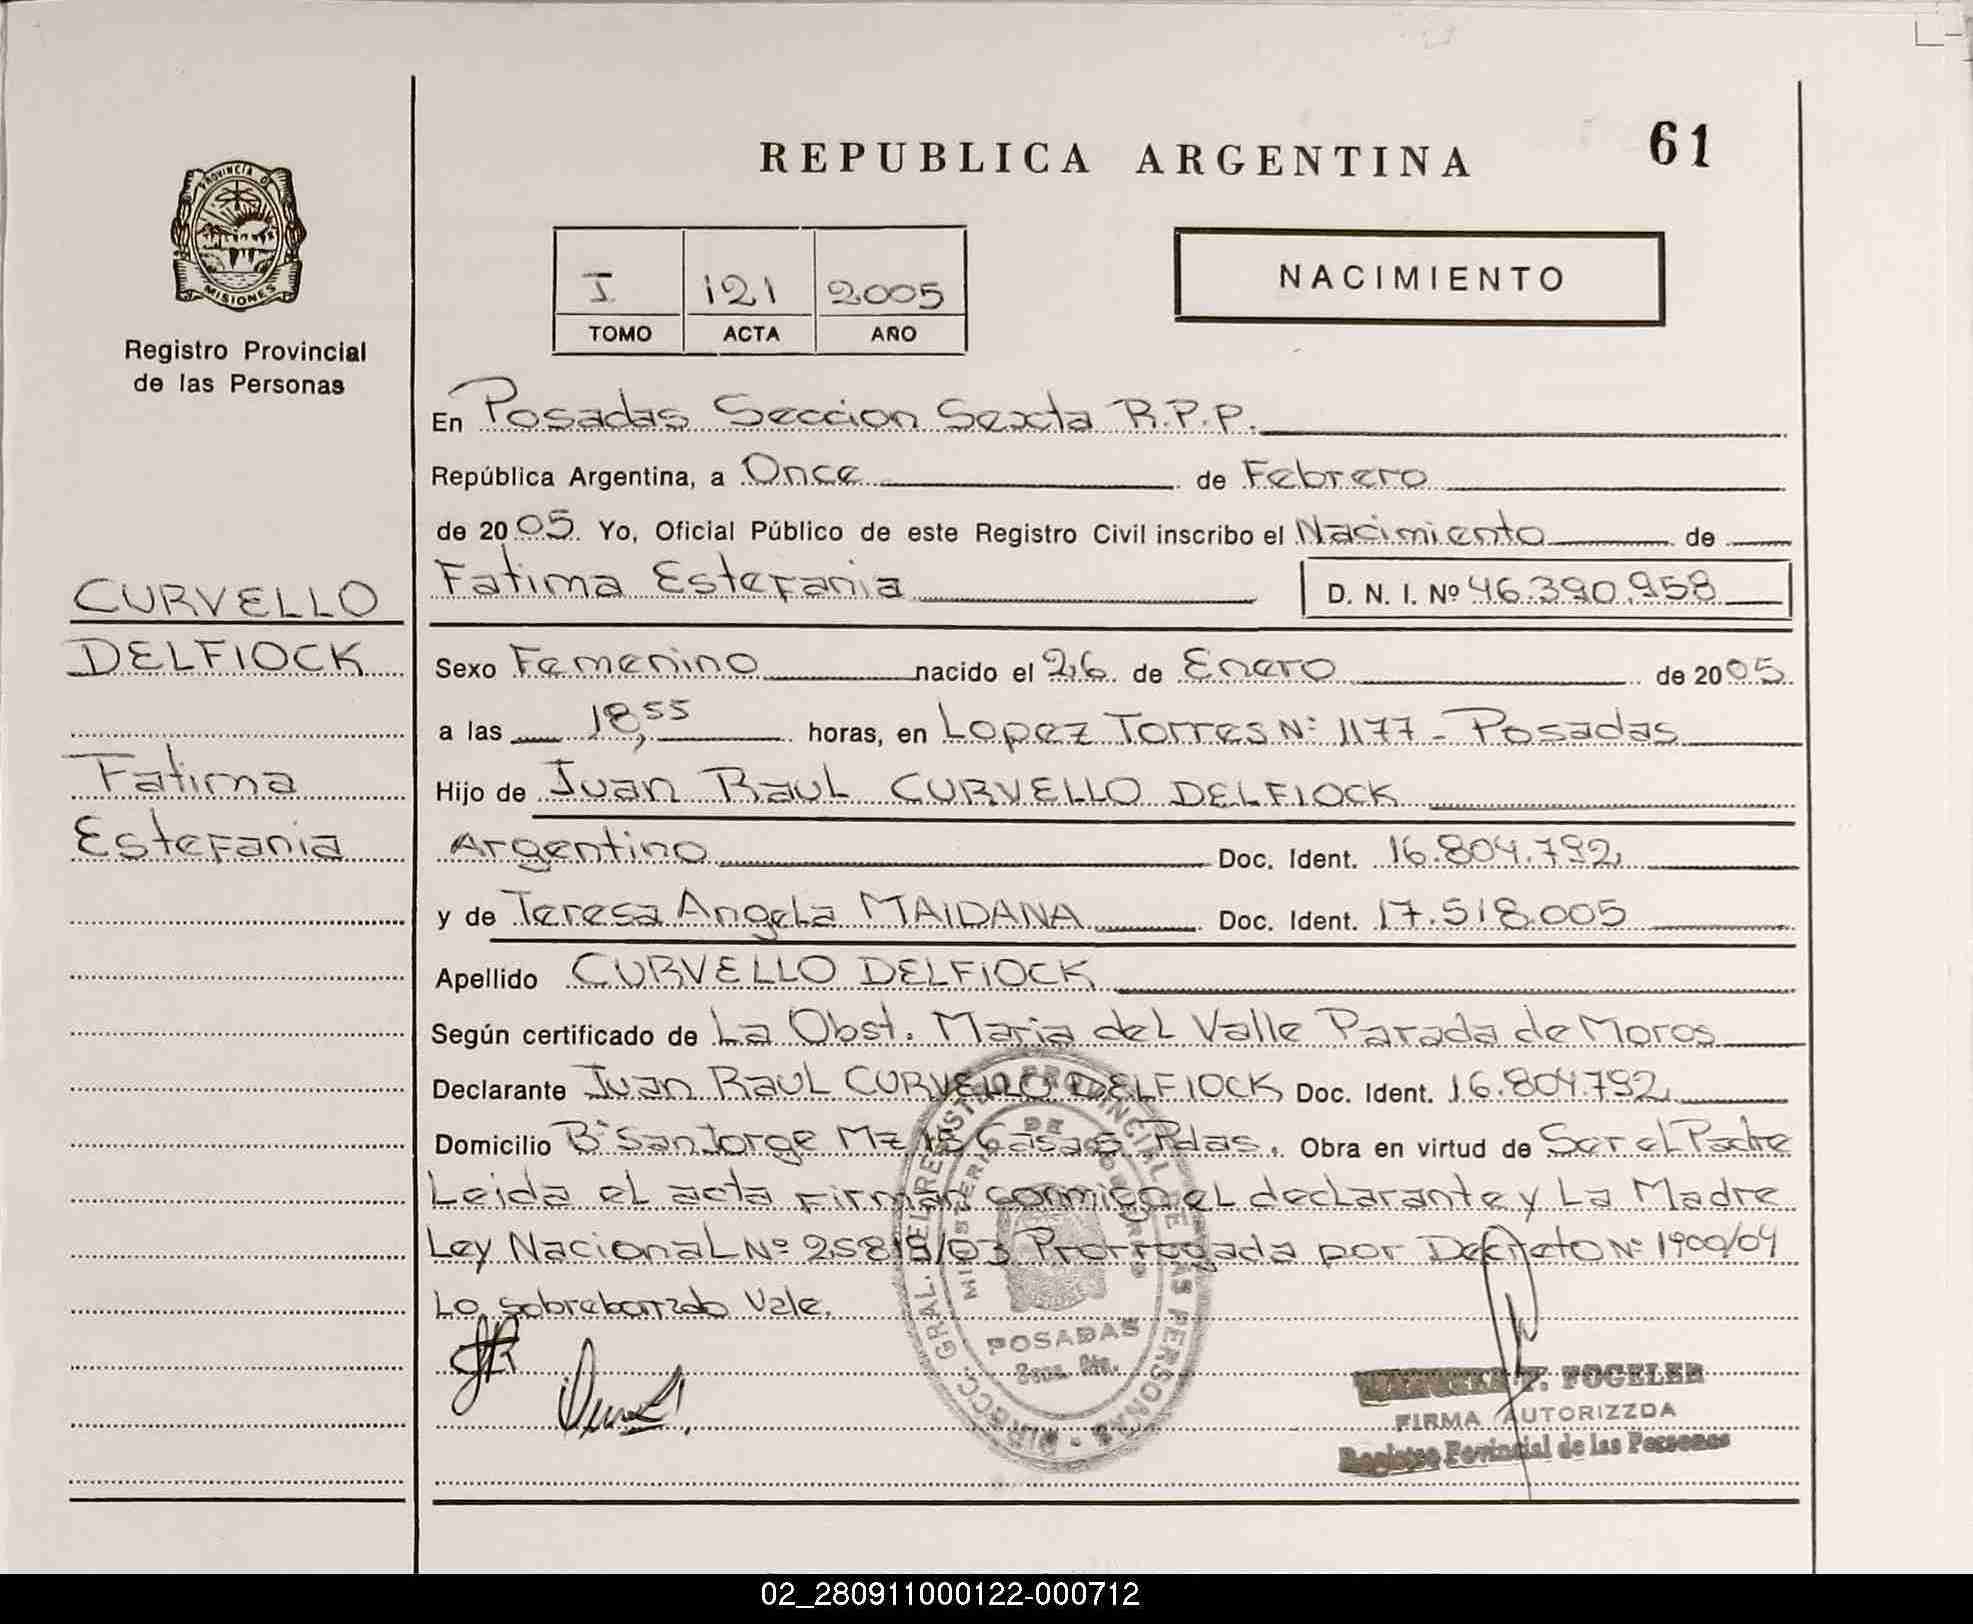 REPUBLICA ARGENTINA
61
PROVINCIA DE
MISIONES
Registro Provincial
de las Personas
I 121 2005
TOMO ACTA AÑO
NACIMIENTO
En Posadas Seccion Sexta R.P.P.
República Argentina, a Once de Febrero
de 2005. Yo, Oficial Público de este Registro Civil inscribo el Nacimiento de
Fatima Estefania D. N. I. Nº 46.390.958
CURVELLO
DELFIOCK
Fatima
Estefania
Sexo Femenino nacido el 26 de Enero de 2005.
a las 18,55 horas, en Lopez Torres Nº 1177 - Posadas
Hijo de Juan Raul CURVELLO DELFIOCK
Argentino Doc. Ident. 16.804.792
y de Teresa Angela MAIDANA Doc. Ident. 17.518.005
Apellido CURVELLO DELFIOCK
Según certificado de La Obst. Maria del Valle Parada de Moros
Declarante Juan Raul CURVELLO DELFIOCK Doc. Ident. 16.804.792
Domicilio Bº San Jorge Mz Casa Pdas. Obra en virtud de Ser el Padre
Leida el acta firman conmigo el declarante y La Madre
Ley Nacional Nº 25819/03 Prorrogada por Decreto Nº 1900/04
Lo sobreborrado Vale.
POSADAS
F. FOGELER
FIRMA AUTORIZZDA
Registro Povincial de las Personas
02_280911000122-000712